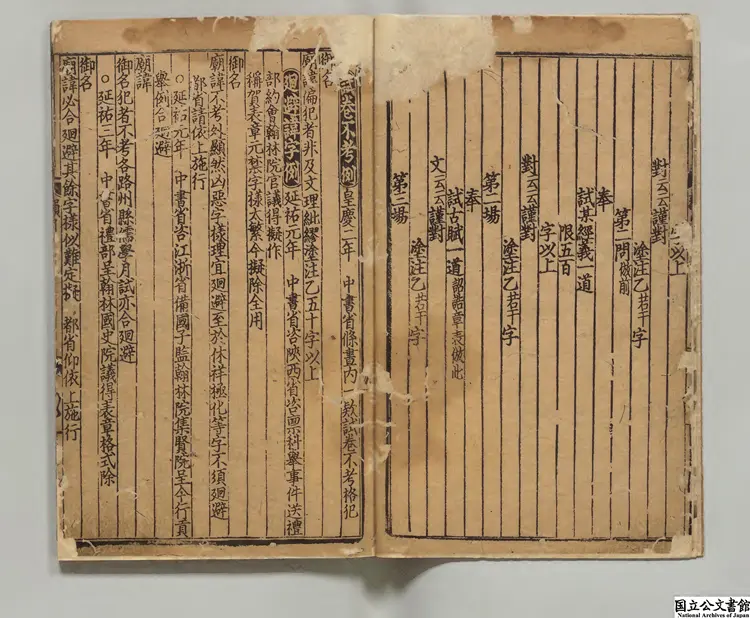 字以上
對云云謹對
塗注乙若干字
第二問倣前
奉
試某經義一道
限五百
字以上
對云云謹對
塗注乙若干字
第二場
奉
試古賦一道詔誥章表倣此
文云云謹對
塗注乙若干字
第三場
試卷不考例 皇慶二年 中書省條畫內一欵試卷不考格犯
御名
廟諱偏犯者非及文理紕繆塗注乙五十字以上
廻避諱字例 延祐元年 中書省咨陝西省咨稟科舉事件送禮
部約會翰林院官議得擬作
稱賀表章元禁字樣太繁今擬除全用
御名
廟諱不考外顯然凶惡字樣理宜廻避至於休祥極化等字不須廻避
都省請依上施行
○延祐元年 中書省咨江浙省備國子監翰林院集賢院呈今行貢
舉例合廻避
廟諱
御名犯者不考各路州縣儒學月試亦合廻避
○延祐三年 中書省禮部呈翰林國史院議得表章格式除
御名
廟諱必合廻避其餘字樣似難定擬 都省仰依上施行
国立公文書館
National Archives of Japan